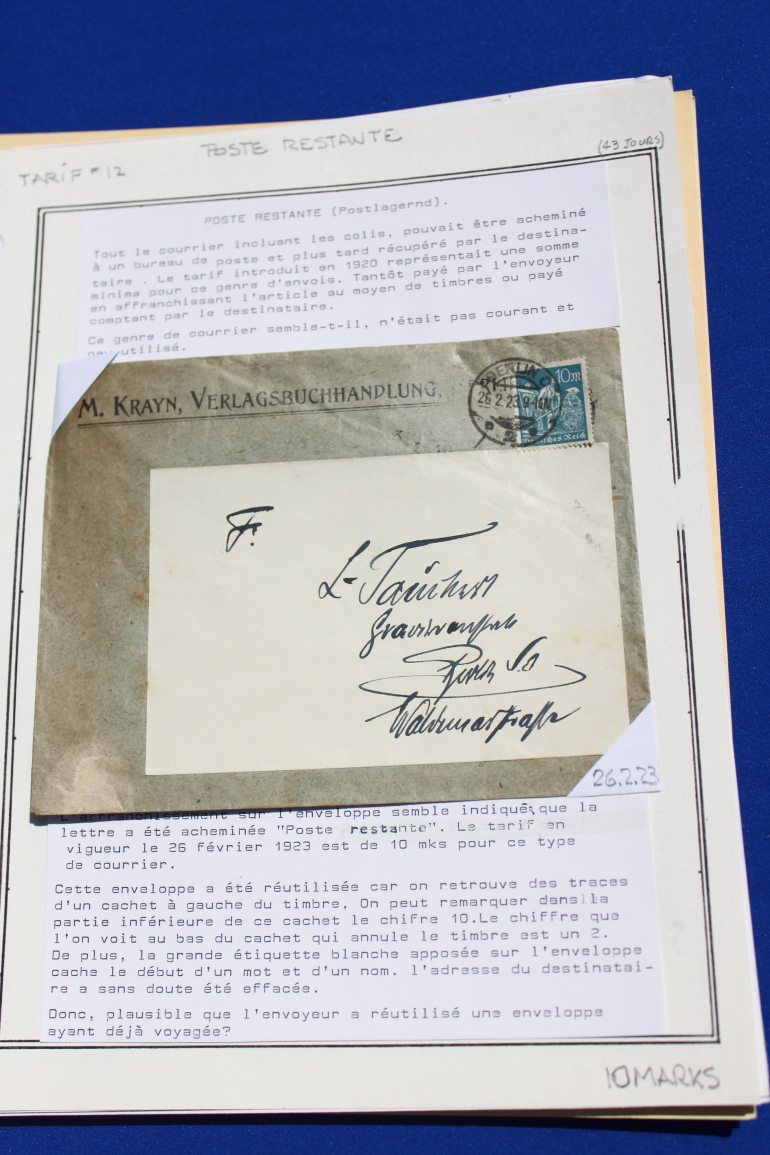 POSTE RESTANTE
(43 JOURS)
TARIF #12
POSTE RESTANTE (Postlagernd).
Tout le courrier incluant les colis, pouvait être acheminé
à un bureau de poste et plus tard récupéré par le destina-
taire . Le tarif introduit en 1920 représentait une somme
minime pour ce genre d'envois. Tantôt payé par l'envoyeur
en affranchissant l'article au moyen de timbres ou payé
comptant par le destinataire.
Ce genre de courrier semble-t-il, n'était pas courant et
peu utilisé.
M. KRAYN, VERLAGSBUCHHANDLUNG.
BERLIN
26.2.23 9-10
2
10m
Deutsches Reich
F.
L. Täuchert
Waldemarstraße
26.2.23
L'affranchissement sur l'enveloppe semble indiqué que la
lettre a été acheminée "Poste restante". Le tarif en
vigueur le 26 février 1923 est de 10 mks pour ce type
de courrier.
Cette enveloppe a été réutilisée car on retrouve des traces
d'un cachet à gauche du timbre, On peut remarquer dans la
partie inférieure de ce cachet le chifre 10.Le chiffre que
l'on voit au bas du cachet qui annule le timbre est un 2.
De plus, la grande étiquette blanche apposée sur l'enveloppe
cache le début d'un mot et d'un nom. l'adresse du destinatai-
re a sans doute été effacée.
Donc, plausible que l'envoyeur a réutilisé une enveloppe
ayant déjà voyagée?
10 MARKS